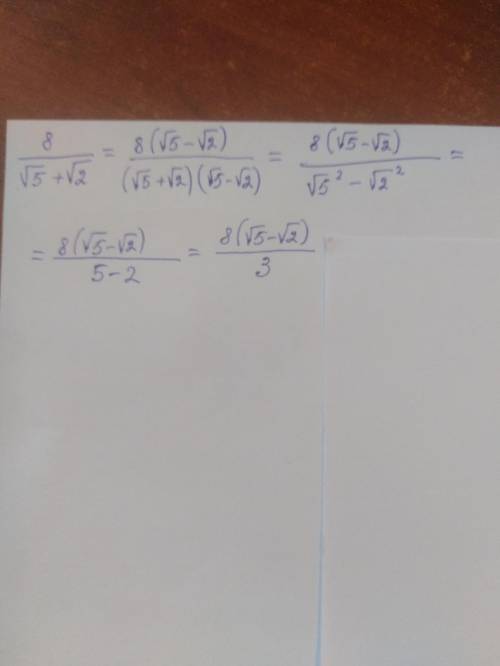 8/(√5+√2) = 8(√5-√2)/((√5+√2)(√5-√2)) = 8(√5-√2)/(√5² - √2²) =
= 8(√5-√2)/(5-2) = 8(√5-√2)/3